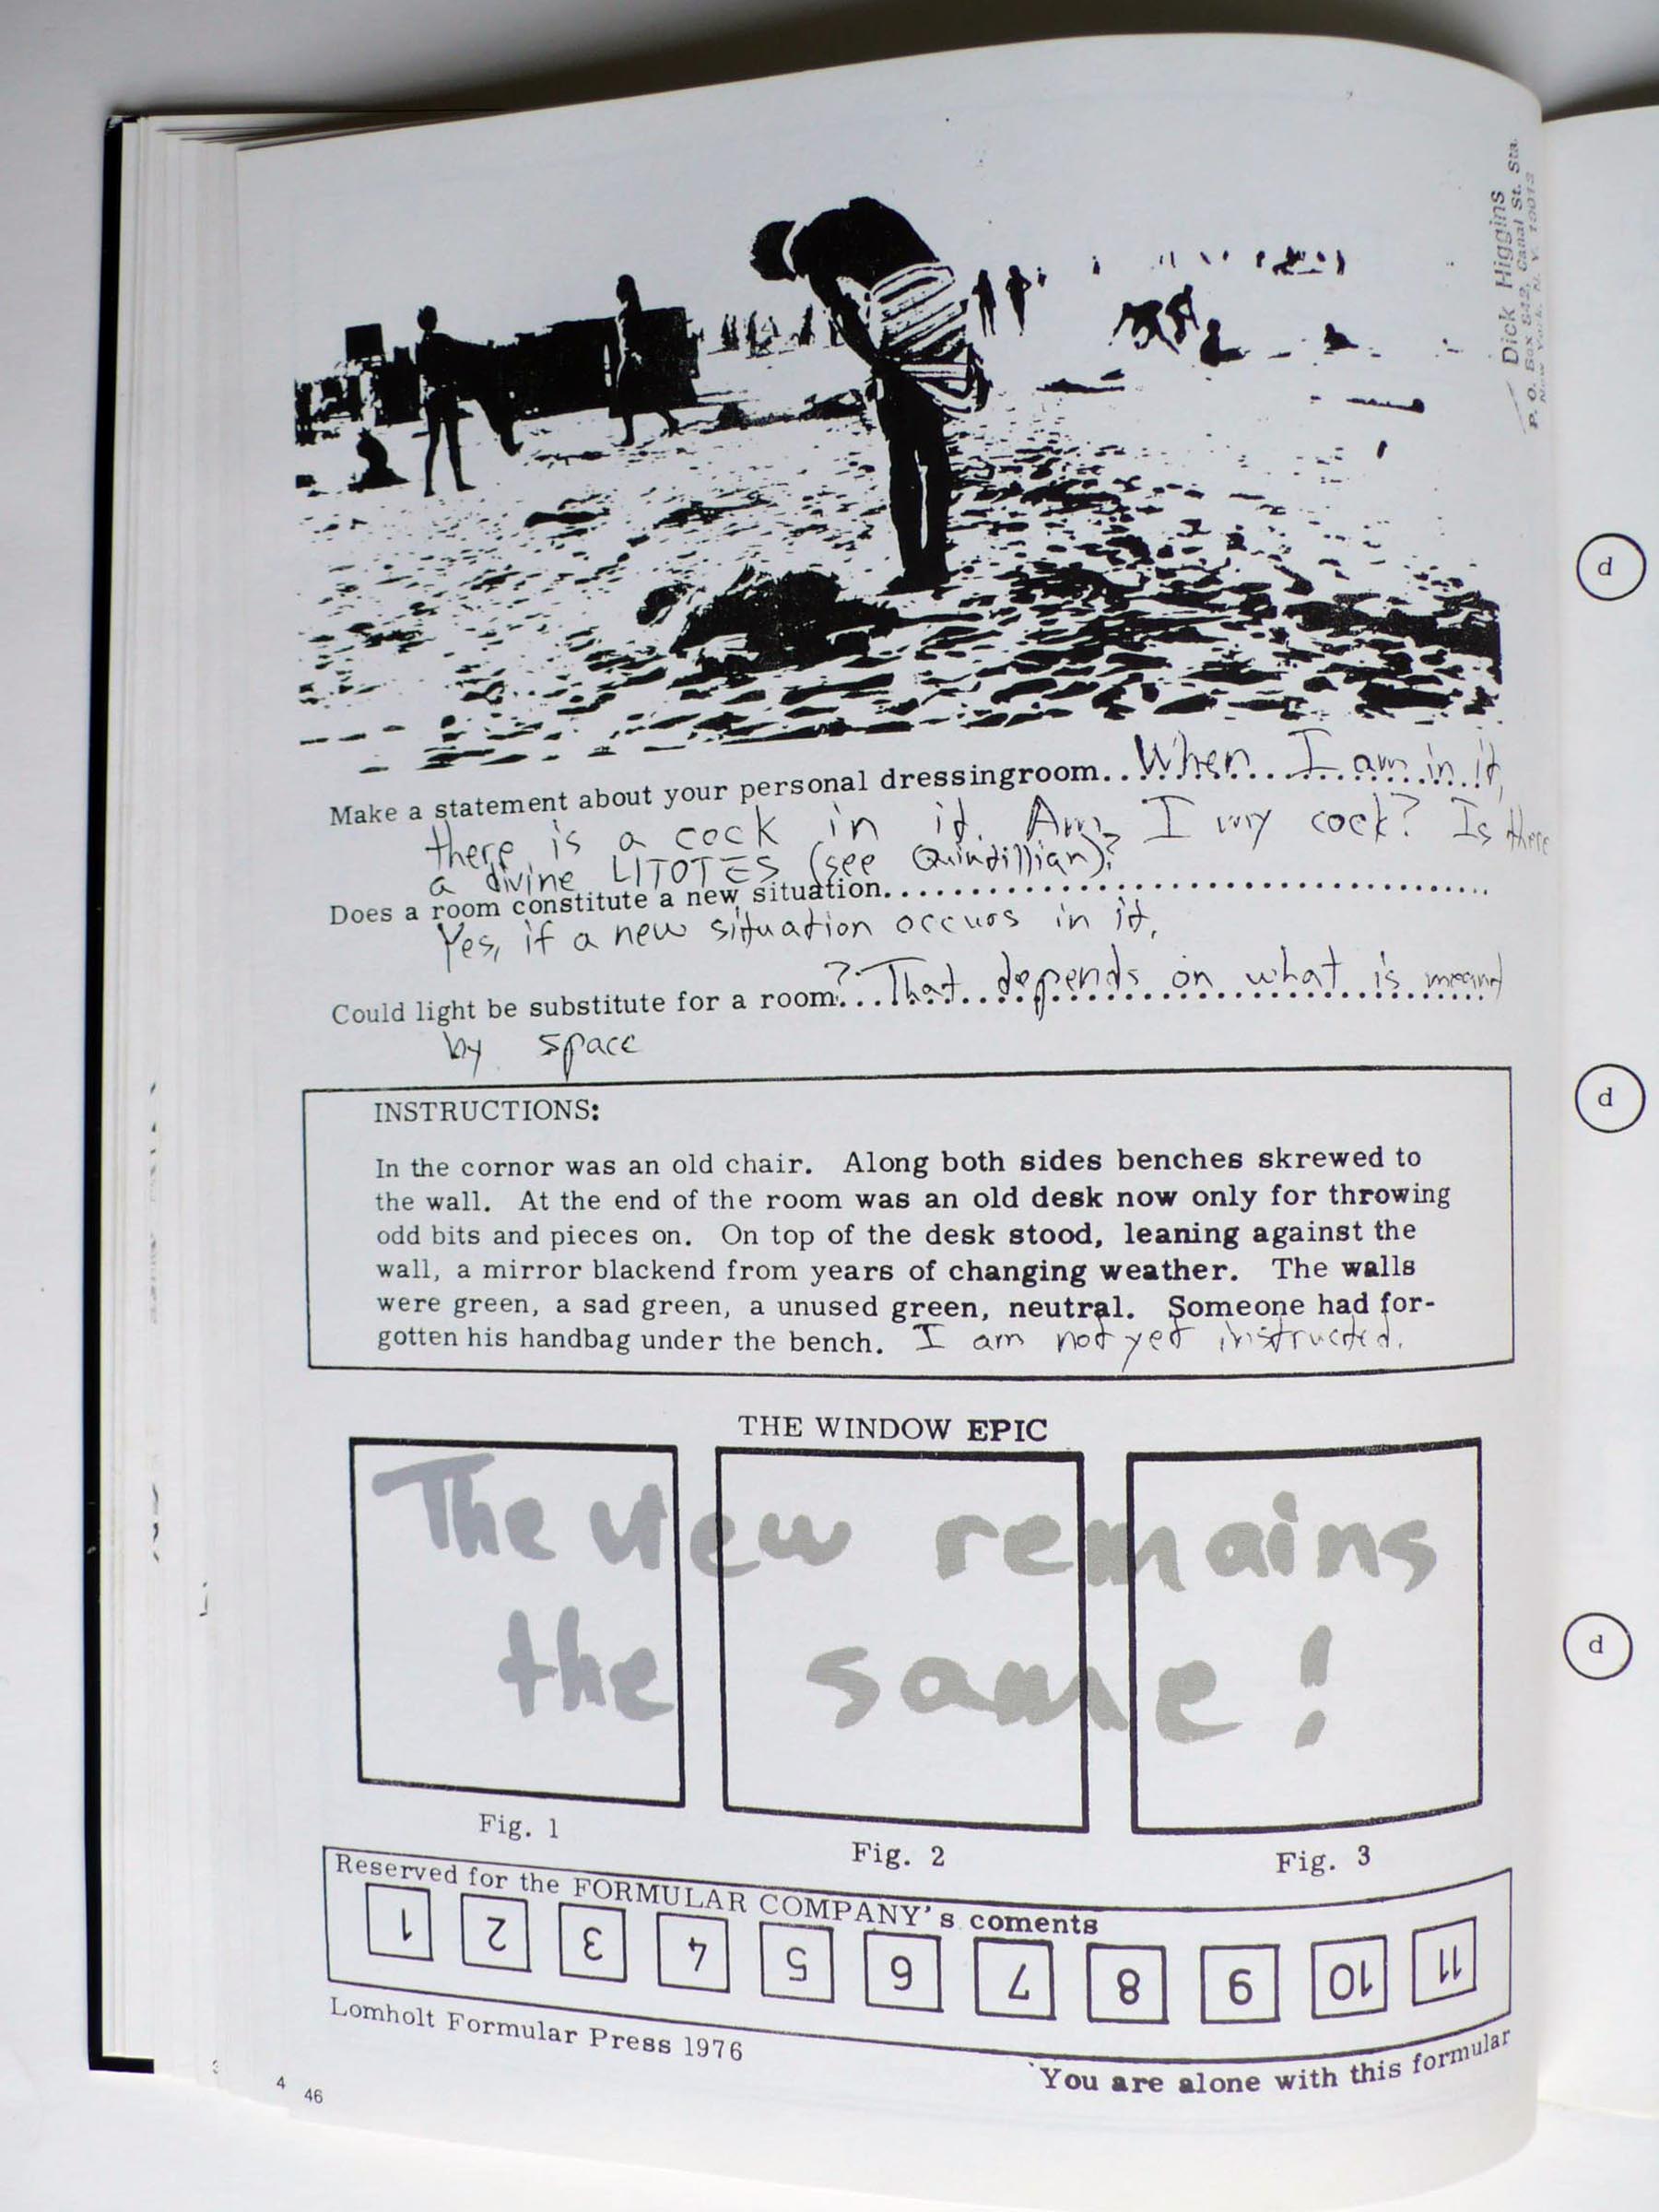 Dick Higgins
P. O. Box 842, Canal St. Sta.
New York, N. Y. 10013
Make a statement about your personal dressingroom....When I am in it,
there is a cock in it. Am I my cock? Is there
a divine LITOTES (see Quintillian)?
Does a room constitute a new situation..............................................
Yes, if a new situation occurs in it.
Could light be substitute for a room?...That depends on what is meant
by space
INSTRUCTIONS:
In the cornor was an old chair. Along both sides benches skrewed to
the wall. At the end of the room was an old desk now only for throwing
odd bits and pieces on. On top of the desk stood, leaning against the
wall, a mirror blackend from years of changing weather. The walls
were green, a sad green, a unused green, neutral. Someone had for-
gotten his handbag under the bench. I am not yet instructed.
THE WINDOW EPIC
The view remains
the same!
Fig. 1
Fig. 2
Fig. 3
Reserved for the FORMULAR COMPANY's coments
1 2 3 4 5 6 7 8 9 10 11
Lomholt Formular Press 1976
You are alone with this formular
4 46
d
d
d